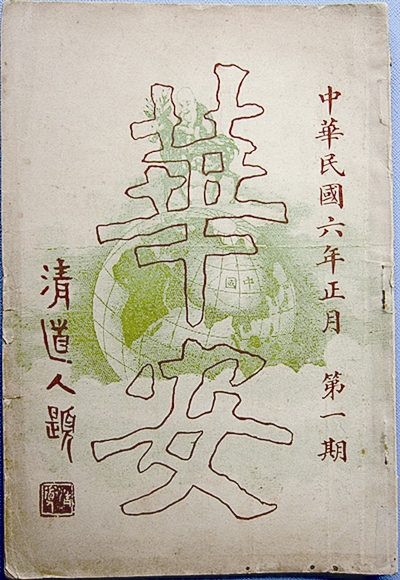 中華民國六年正月 第一期
華安
清道人題
中國